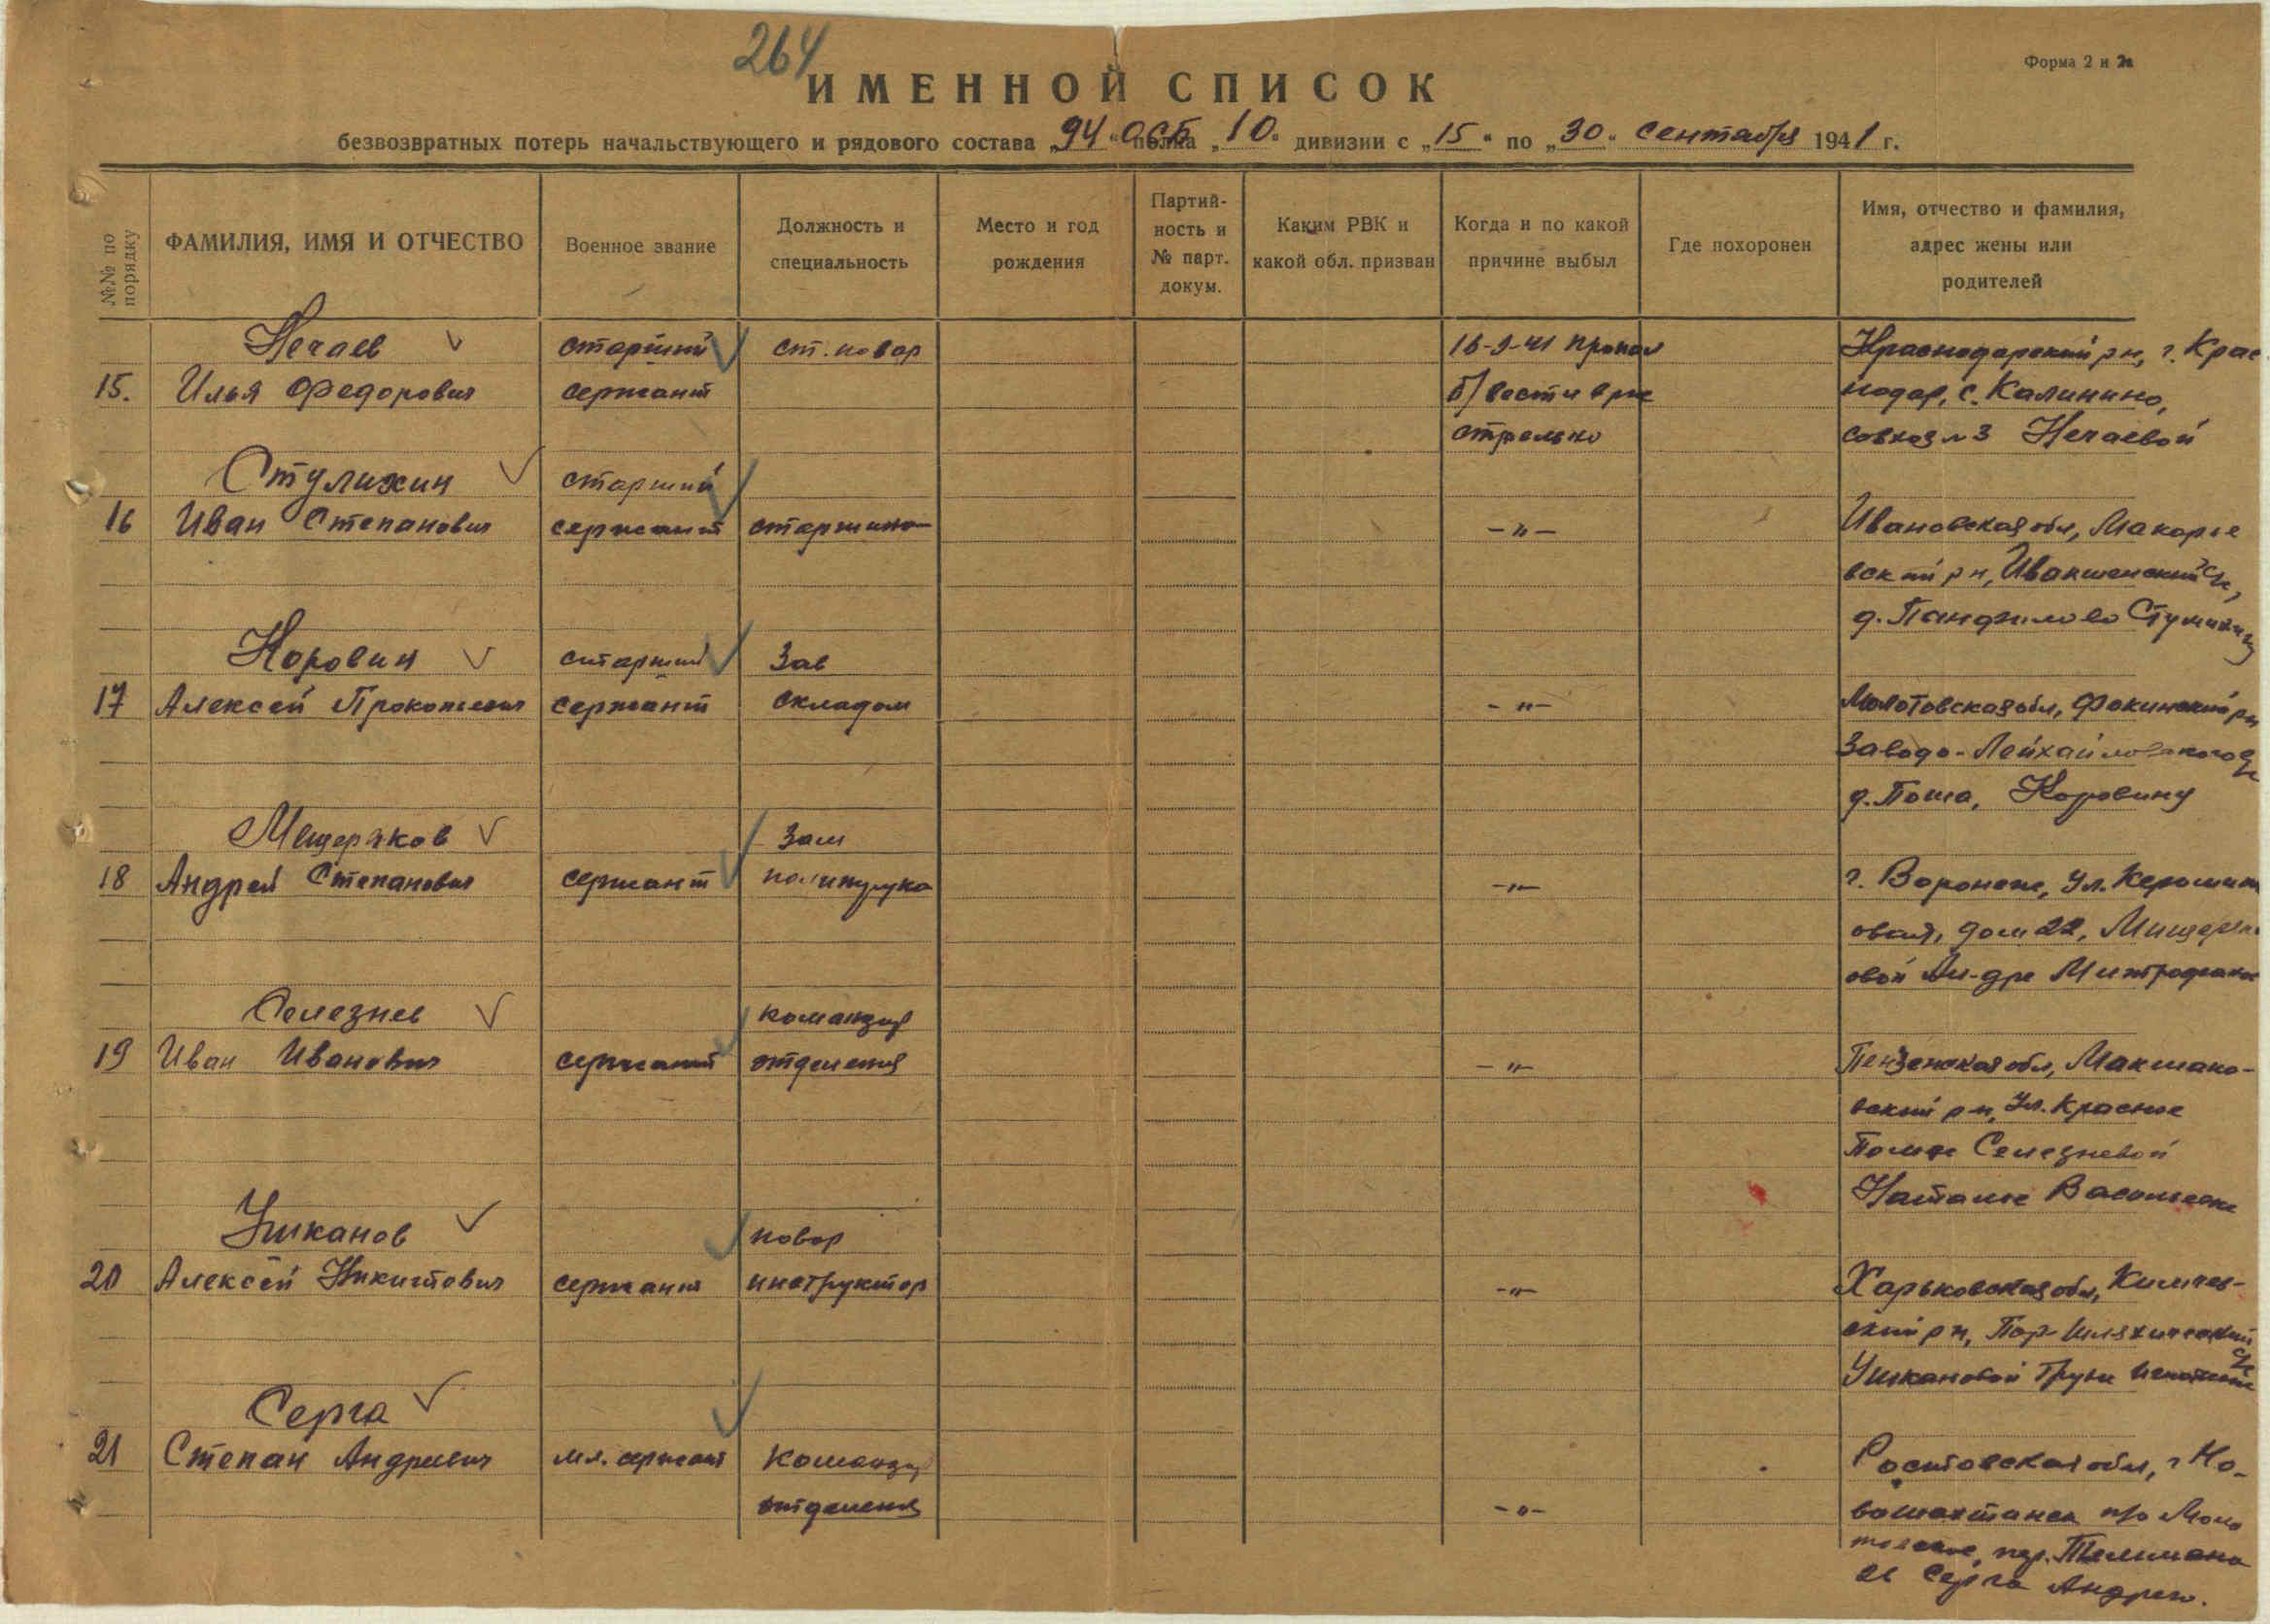 264
Форма 2 и 2а
ИМЕННОЙ СПИСОК
безвозвратных потерь начальствующего и рядового состава „94" ОСБ полка „10" дивизии с „15" по „30" сентября 1941 г.
№№ по порядку
ФАМИЛИЯ, ИМЯ И ОТЧЕСТВО
Военное звание
Должность и специальность
Место и год рождения
Партийность и № парт. докум.
Каким РВК и какой обл. призван
Когда и по какой причине выбыл
Где похоронен
Имя, отчество и фамилия, адрес жены или родителей
Нечаев старший ст. повар 16-9-41 пропал Краснодарский рн, г. Крас
15. Илья Федорович сержант б/вести в пе нодар, с. Калинино,
совхоз №3 Нечаевой
Стулихин старший
16 Иван Степанович сержант старшина -"- Ивановская обл, Макарье
вский рн,
д. Панфилово
Коровин старший Зав
17 Алексей Прокопьевич сержант складом -"- Молотовская обл, Фокинский рн
д. Поша, Коровину
Мещеряков Зам
18 Андрей Степанович сержант политрука -"- г. Воронеж, ул.
дом 22,
овой
Селезнев командир
19 Иван Иванович сержант отделения -"- Пензенская обл,
вский рн, ул. Красное
Селезневой
Наталье Васильевне
Ушканов повар
20 Алексей Никитович сержант инструктор -"- Харьковская обл,
ский рн,
Ушкановой
Серга
21 Степан Андреевич мл. сержант Командир Ростовская обл, г. Но-
отделения -"- вошахтинск
пер. Тельмана
Серга Андрею.